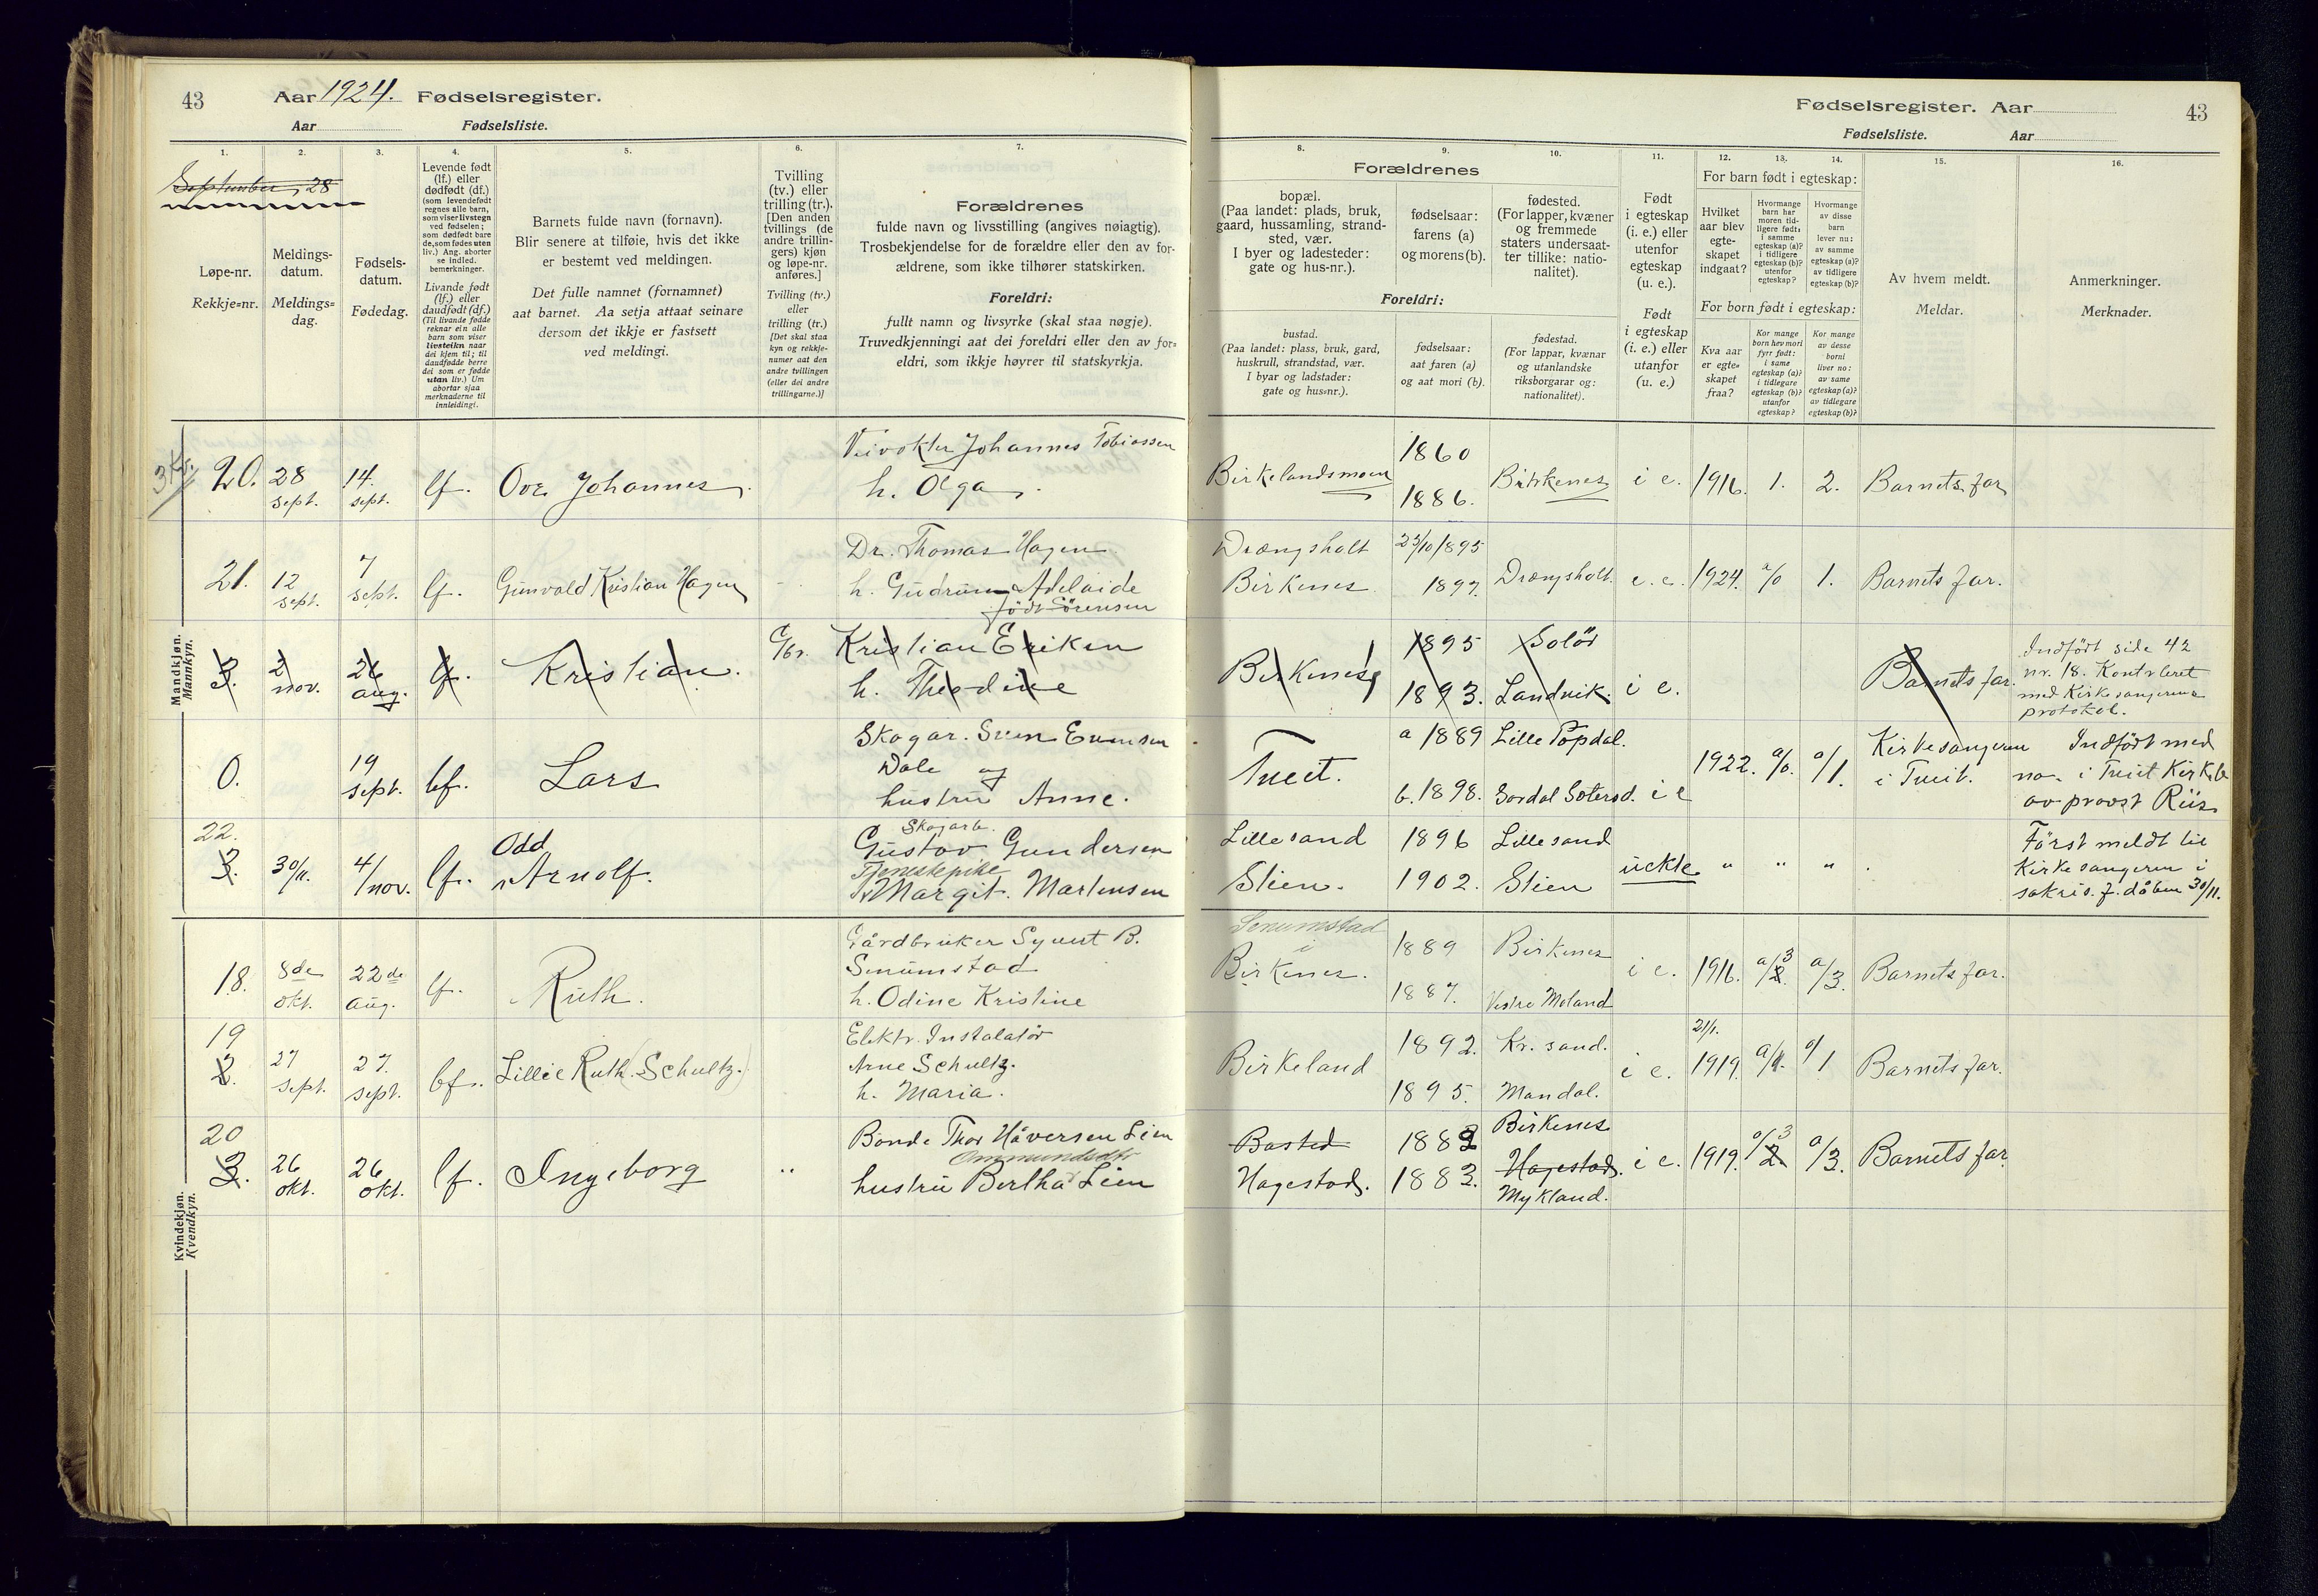 43
Aar 1924. Fødselsregister.
Aar Fødselsliste.
September, 28
1. 2. 3. 4. 5. 6. 7.
Løpe-nr.
Rekkje=nr.
Meldings-
datum.
Meldings=
dag.
Fødsels-
datum.
Fødedag.
Levende født
(lf.) eller
dødfødt (df.)
(som levendefødt
regnes alle barn,
som viser livstegn
ved fødselen;
som dødfødt bare
de, som fødes uten
liv.) Ang. aborter
se indled.
bemerkninger.
Livande født
(lf.) eller
daudfødt (df.)
(Til livande fødde
reknar ein alle
barn som viser
livsteikn naar
dei kjem til; til
daudfødde berre
dei som er fødde
utan liv.) Um
abortar sjaa
merknaderne til
innleidingi.
Barnets fulde navn (fornavn).
Blir senere at tilføie, hvis det ikke
er bestemt ved meldingen.
Det fulle namnet (fornamnet)
aat barnet. Aa setja attaat seinare
dersom det ikkje er fastsett
ved meldingi.
Tvilling
(tv.) eller
trilling (tr.).
[Den anden
tvillings (de
andre trillin-
gers) kjøn
og løpe-nr.
anføres.]
Tvilling (tv.)
eller
trilling (tr.)
[Det skal staa
kyn og rekkje-
numer aat den
andre tvillingen
(eller dei andre
trillingarne.)]
Forældrenes
fulde navn og livsstilling (angives nøiagtig).
Trosbekjendelse for de forældre eller den av for-
ældrene, som ikke tilhører statskirken.
Foreldri:
fullt namn og livsyrke (skal staa nøgje).
Truvedkjenningi aat dei foreldri eller den av for=
eldri, som ikkje høyrer til statskyrkja.
Mandkjøn.
Mannkyn.
3 Kr.
20. 28 sept. 14. sept. lf. Ove Johannes.
Veivokter Johannes Tobiassen
h. Olga.
21. 12 sept. 7 sept. lf. Gunvald Kristian Hagen
Dr. Thomas Hagen
h. Gudrun Adelaide
født Sörensen
3. 2 nov. 26 aug. lf. Kristian.
Kristian Eriksen
h. Theodine
0. 19 sept. lf. Lars
Dale og
hustru Anne.
22.
3. 30/11. 4/nov. lf. Odd
Arnolf.
Skogarb.
Gustav Gundersen
Tjenestepike
Margit. Martensen
Kvindekjøn.
Kvendkyn.
18. 8de okt. 22de aug. lf. Ruth.
Gårdbruker Syvert B.
Senumstad
h. Odine Kristine
19
2. 27 sept. 27. sept. lf. Lillie Ruth (Schultz.)
Elektr. Instalatør
Arne Schultz.
h. Maria.
20
3. 26 okt. 26 okt. lf. Ingeborg "
Bonde Thor Håversen Lien
Ommundsdtr
hustru Bertha Lien
Fødselsregister. Aar
43
Fødselsliste. Aar
8. 9. 10. 11. 12. 13. 14. 15. 16.
Forældrenes
bopæl.
(Paa landet: plads, bruk,
gaard, hussamling, strand-
sted, vær.
I byer og ladesteder:
gate og hus-nr.).
fødselsaar:
farens (a)
og morens (b).
fødested.
(For lapper, kvæner
og fremmede
staters undersaat-
ter tillike: natio-
nalitet).
Foreldri:
bustad.
(Paa landet: plass, bruk, gard,
huskrull, strandstad, vær.
I byar og ladstader:
gate og hus=nr.).
fødselsaar:
aat faren (a)
og aat mori (b).
fødestad.
(For lappar, kvænar
og utanlandske
riksborgarar og:
nationalitet).
Født
i egteskap
(i. e.) eller
utenfor
egteskap
(u. e.).
Født
i egteskap
(i. e.) eller
utanfor
(u. e.)
For barn født i egteskap:
Hvilket
aar blev
egte-
skapet
indgaat?
Hvormange
barn har
moren tid-
ligere født:
i samme
egteskap (a)?
i tidligere
egteskap (b)?
utenfor
egteskap?
Hvormange
av disse
barn
lever nu:
av samme
egteskap (a)?
av tidligere
egteskap (b)?
For born født i egteskap:
Kva aar
er egte=
skapet
fraa?
Kor mange
born hev mori
fyrr født:
i same
egteskap (a)?
i tidlegare
egteskap (b)?
utanfor
egteskap?
Kor mange
av desse
borni
liver no:
av same
egteskap (a)?
av tidlegare
egteskap (b)?
Av hvem meldt.
Meldar.
Anmerkninger.
Merknader.
Birkelandsmoen 1860
1886. Birkenes i e. 1916. 1. 2. Barnets far
Drangsholt 23/10 1895
Birkenes 1897. Drangsholt. i. e. 1924. a/0 1. Barnets far.
Birkenes 1895 Solör
1893. Landvik. i e. Barnets far.
Indført side 42
nr. 18. Kontrleret
med Kirkesangerens
protokol.
Tveit. a 1889
b. 1898. i e 1922. a/0. a/1. Kirkesangeren
i Tveit.
Indført med
no. i Tveit Kirkeb
av provst Riis
Lillesand 1896 Lillesand
Stien. 1902. Stien uekte " " "
Först meldt til
Kirkesangeren i
sakris. f. dåben 30/11.
Senumstad
i
Birkenes. 1889 Birkenes
1887. Vestre Moland i e. 1916. a/3 2. a/3. Barnets far.
Birkeland 1892. Kr. sand.
1895. Mandal. i e. 21/1. 1919. a/1. a/1 Barnets far.
Basted 1882 Birkenes
Hagestad. 1883. Hagestad.
Mykland. i e. 1919. a/3 2. a/3. Barnets far.